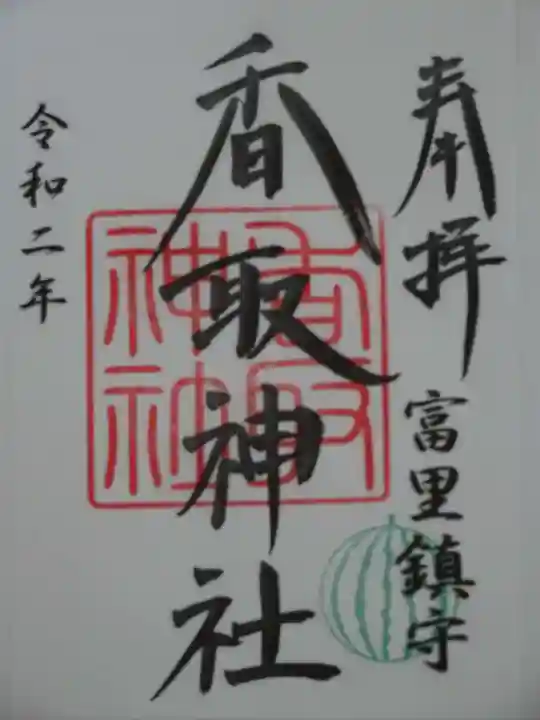 奉拝
富里鎮守
香取神社
香取
神社
令和二年